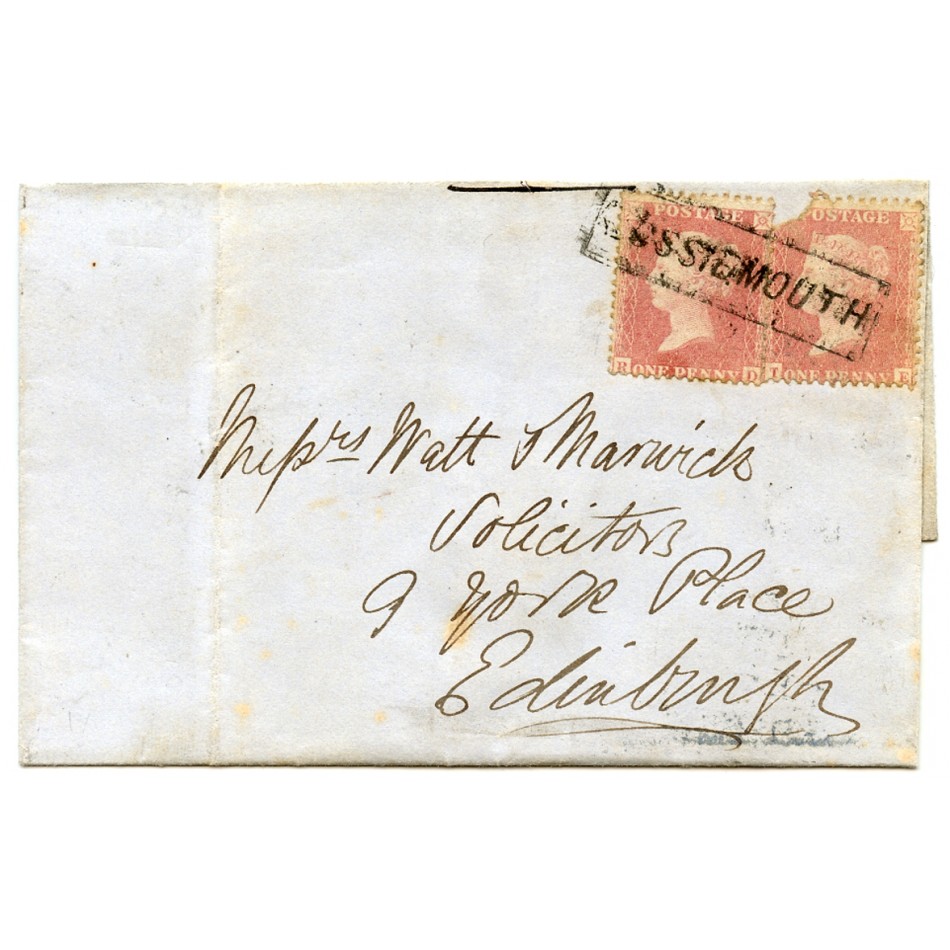 POSTAGE OSTAGE
LOSSIEMOUTH
R ONE PENNY D I ONE PENNY E
Messrs Watt & Marwick
Solicitors
9 York Place
Edinburgh